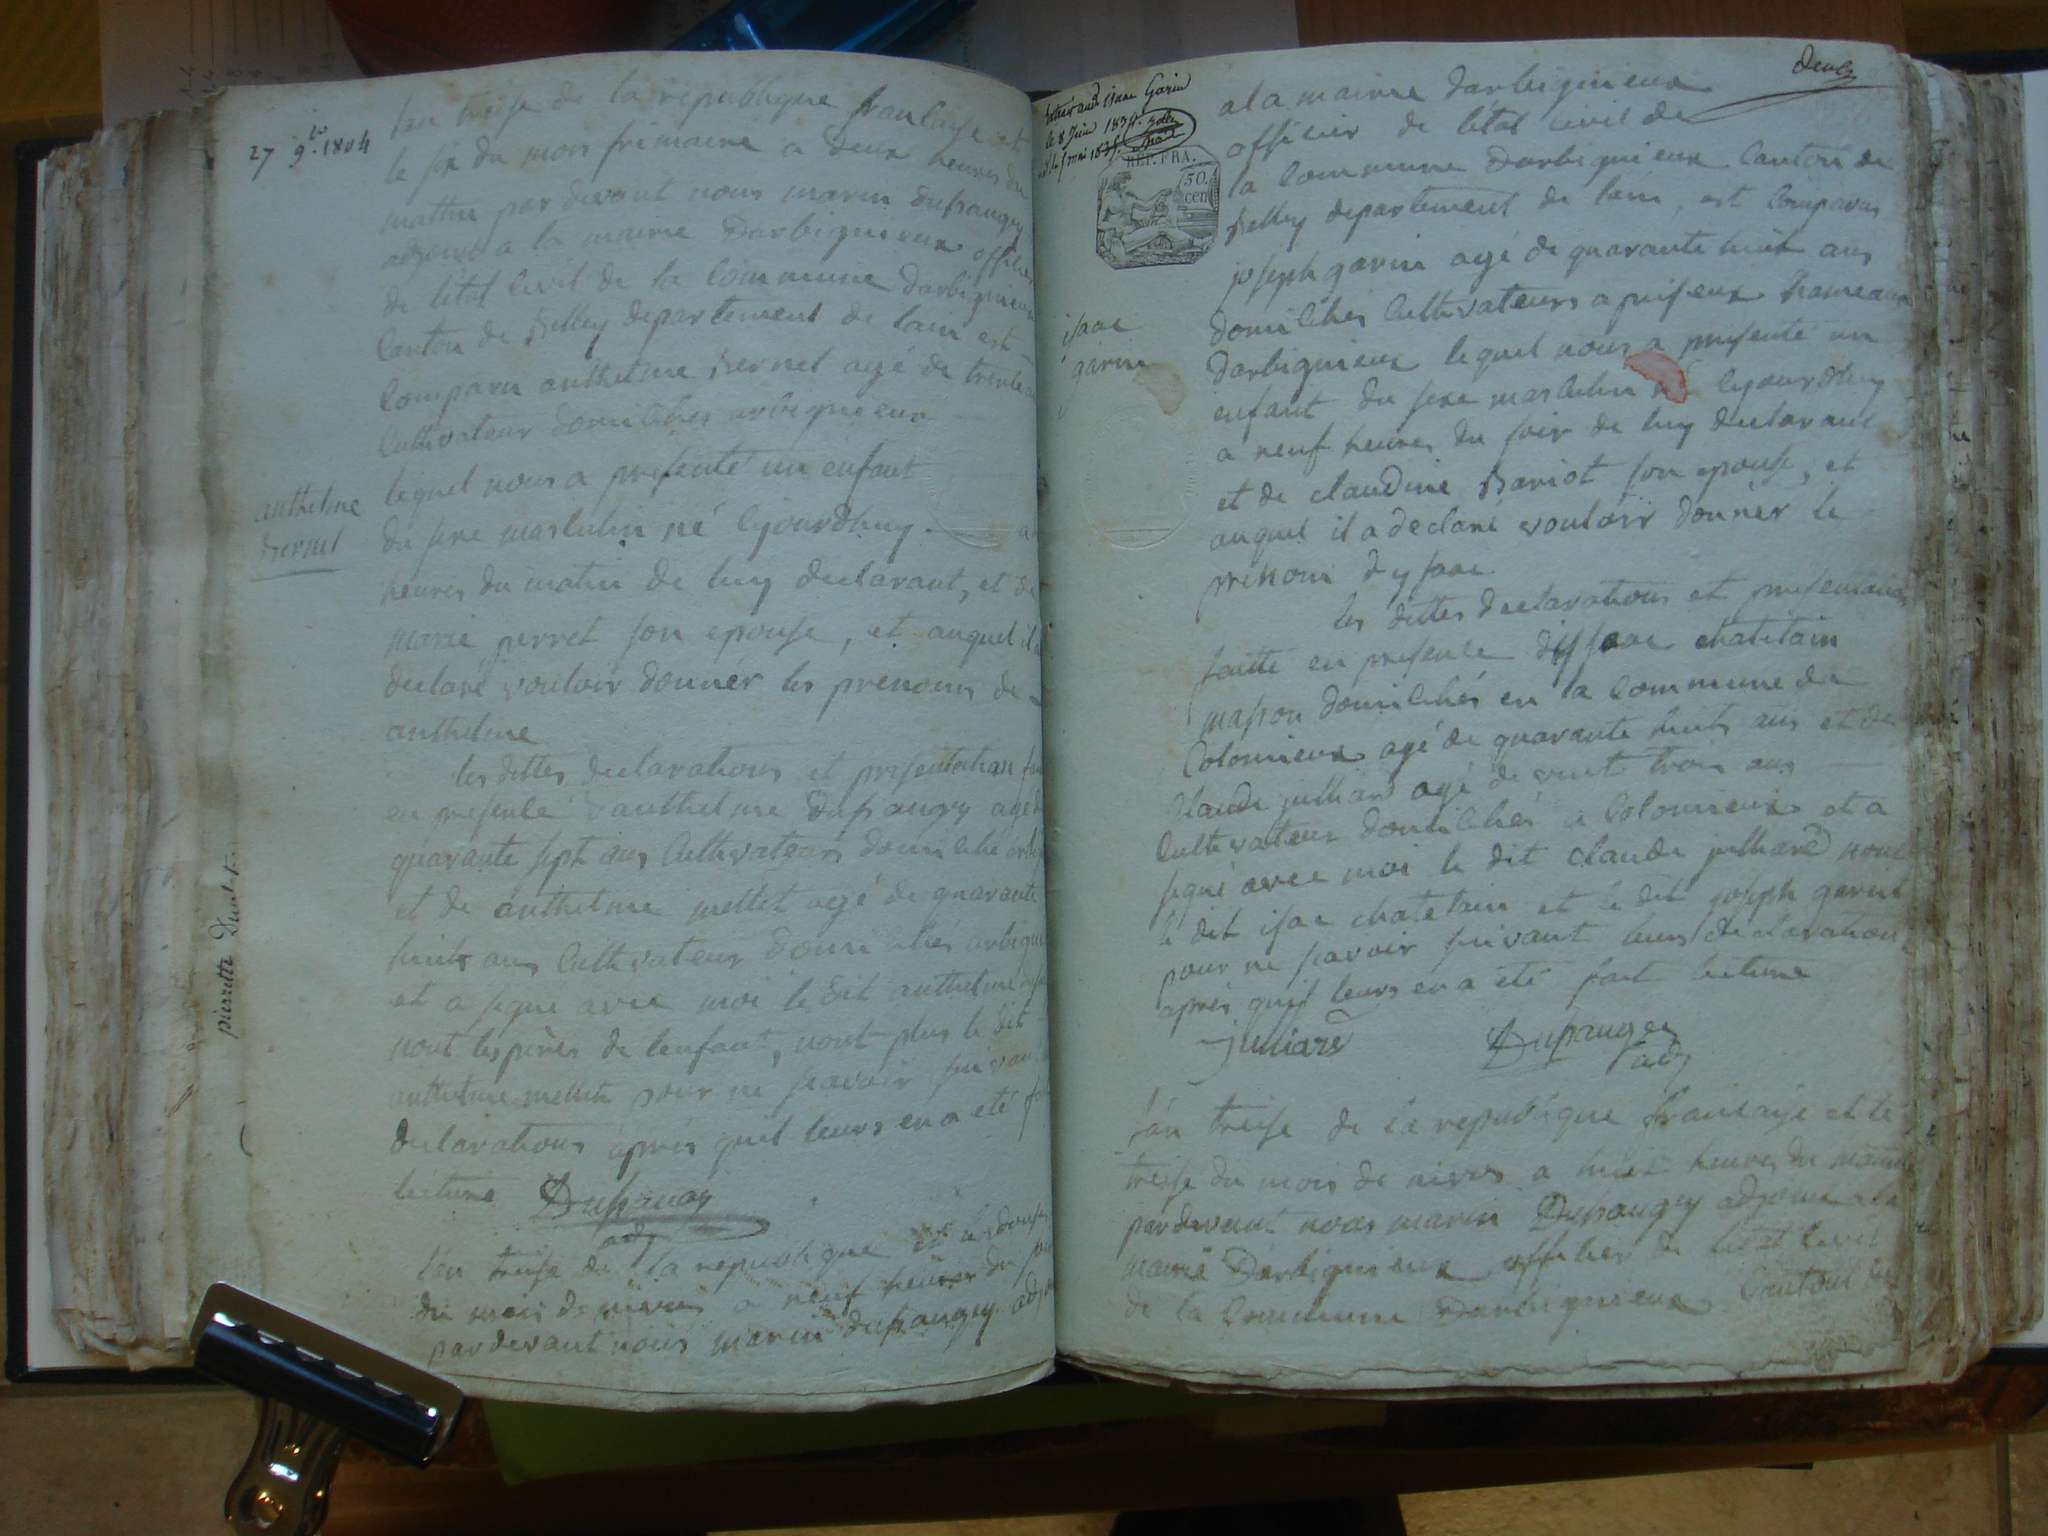 27 9.bre 1804
lan treise de la republique francaise et
le six du mois frimaire a deux heures du
mattin par devant nous marin dufraugey
adjoint a la mairie Darbignieux officier
de létat civil de la Commune darbignieux
Canton de Belley departement de lain est
Comparu anthelme Bernet agé de trente
Cultivateur domiciliés arbignieux
lequel nous a presenté un enfant
anthelme
Bernet
du sexe masculin né cejourdhuy
heures du matin de luy declarant, et de
marie perret son epouse, et auquel il a
declaré vouloir donnér les prenoms de
anthelme
les dittes declarations et presentation
en presence danthelme Dufraugey agé
quarante sept ans Cultivateurs domicilié
et de anthelme mettet agé de quarante
huits ans Cultivateur domiciliés
et a signe avec moi le dit anthelme
nont les pères de lenfant, nont plus le dit
anthelme mettet pour ne scavoir suivant
declarations apres quil leurs en a eté
lecture Dufraugey
adj
pierrette
lan treise de la republique et le douse
du mois de nivos a neuf heures du soir
pardevant nous marin dufraugey adjoint
isaac Garin
le 8 Juin 1834
REP. FRA.
50.
cen
isaac
garin
a la mairie darbignieux
officier de létat civil de
la Commune darbignieux Canton de
Belley departement de lain, est Comparus
joseph garin agé de quarante huit ans
domiciliés Cultivateurs a hameaux
darbignieux lequel nous a presenté un
enfant du sexe masculin né cejourdhuy
a neuf heures du soir de luy declarant
et de claudine Bariot son epouse, et
auquel il a declaré vouloir donnér le
prenom dysaac
les dittes declarations et presentation
faitte en presence dissaac chatelain
masson domiciliés en la Commune de
Colomieux agé de quarante huits ans et de
Claude julliard agé de vint trois ans
Cultivateur domiciliés a Colomieux et a
signé avec moi le dit claude julliard nont
le dit isac chatelain et le dit joseph garin
pour ne scavoir suivant leurs declaration
apres quil leurs en a été fait lecture
Julliard Dufraugey
adj
lan treise de la republique francaise et le
treise du mois de nivos a huit heures du matin
pardevant nous marin Dufraugey adjoint a la
mairie Darbignieux officier de létat civil
de la Commune Darbignieux Canton de